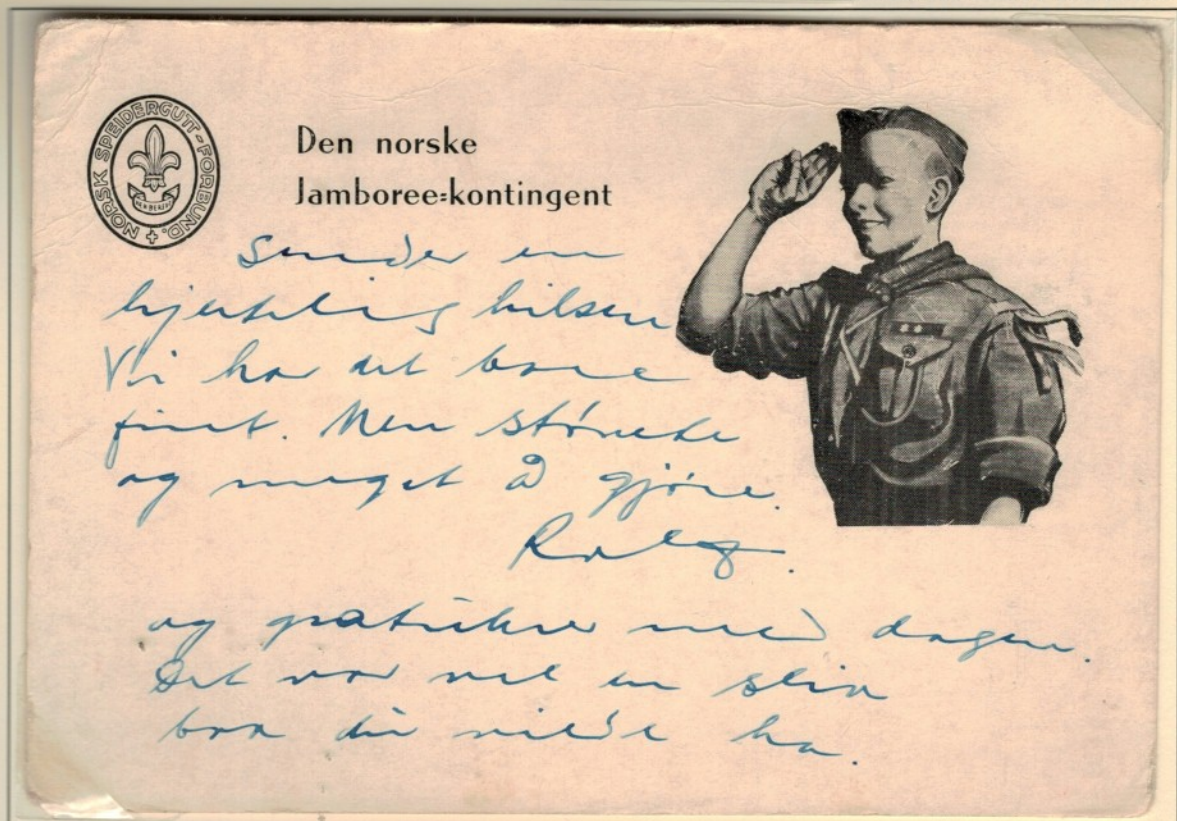 NORSK SPEIDERGUTT-FORBUND.
Den norske
Jamboree-kontingent
Sender en
hjertelig hilsen
Vi har det bare
fint. Men
og meget å gjøre.
Rolf.
og gratulerer med dagen.
Det var vel en slik
du vilde ha.